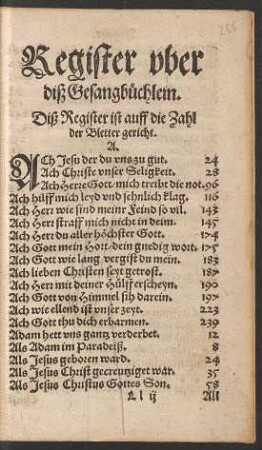 Register vber
diß Gesangbüchlein.
Diß Register ist auff die Zahl
der Bletter gericht.
A.
ACh Jesu der du vns zu gut. 24
Ach Christe vnser Seligkeit. 28
Ach Herre Gott mich treibt die not. 96
Ach hilff mich leyd vnd sehnlich klag. 116
Ach Herr wie sind meine Feind so vil. 143
Ach Herr straff mich nicht in deim. 145
Ach Herr du aller höchster Gott. 174
Ach Gott mein Hort/dein gnedig wort. 175
Ach Gott wie lang vergist du mein. 183
Ach lieben Christen seyt getrost. 187
Ach Herr mit deiner Hülff erscheyn. 190
Ach Gott von Himmel sih darein. 197
Ach wie ellend ist vnser zeyt. 223
Ach Gott thu dich erbarmen. 239
Adam hett vns gantz verderbet. 12
Als Adam im Paradeiß. 8
Als Jesus geboren ward. 24
Als Jesus Christ gecreutziget war. 35
Als Jesus Christus Gottes Son. 58
Ll ij All